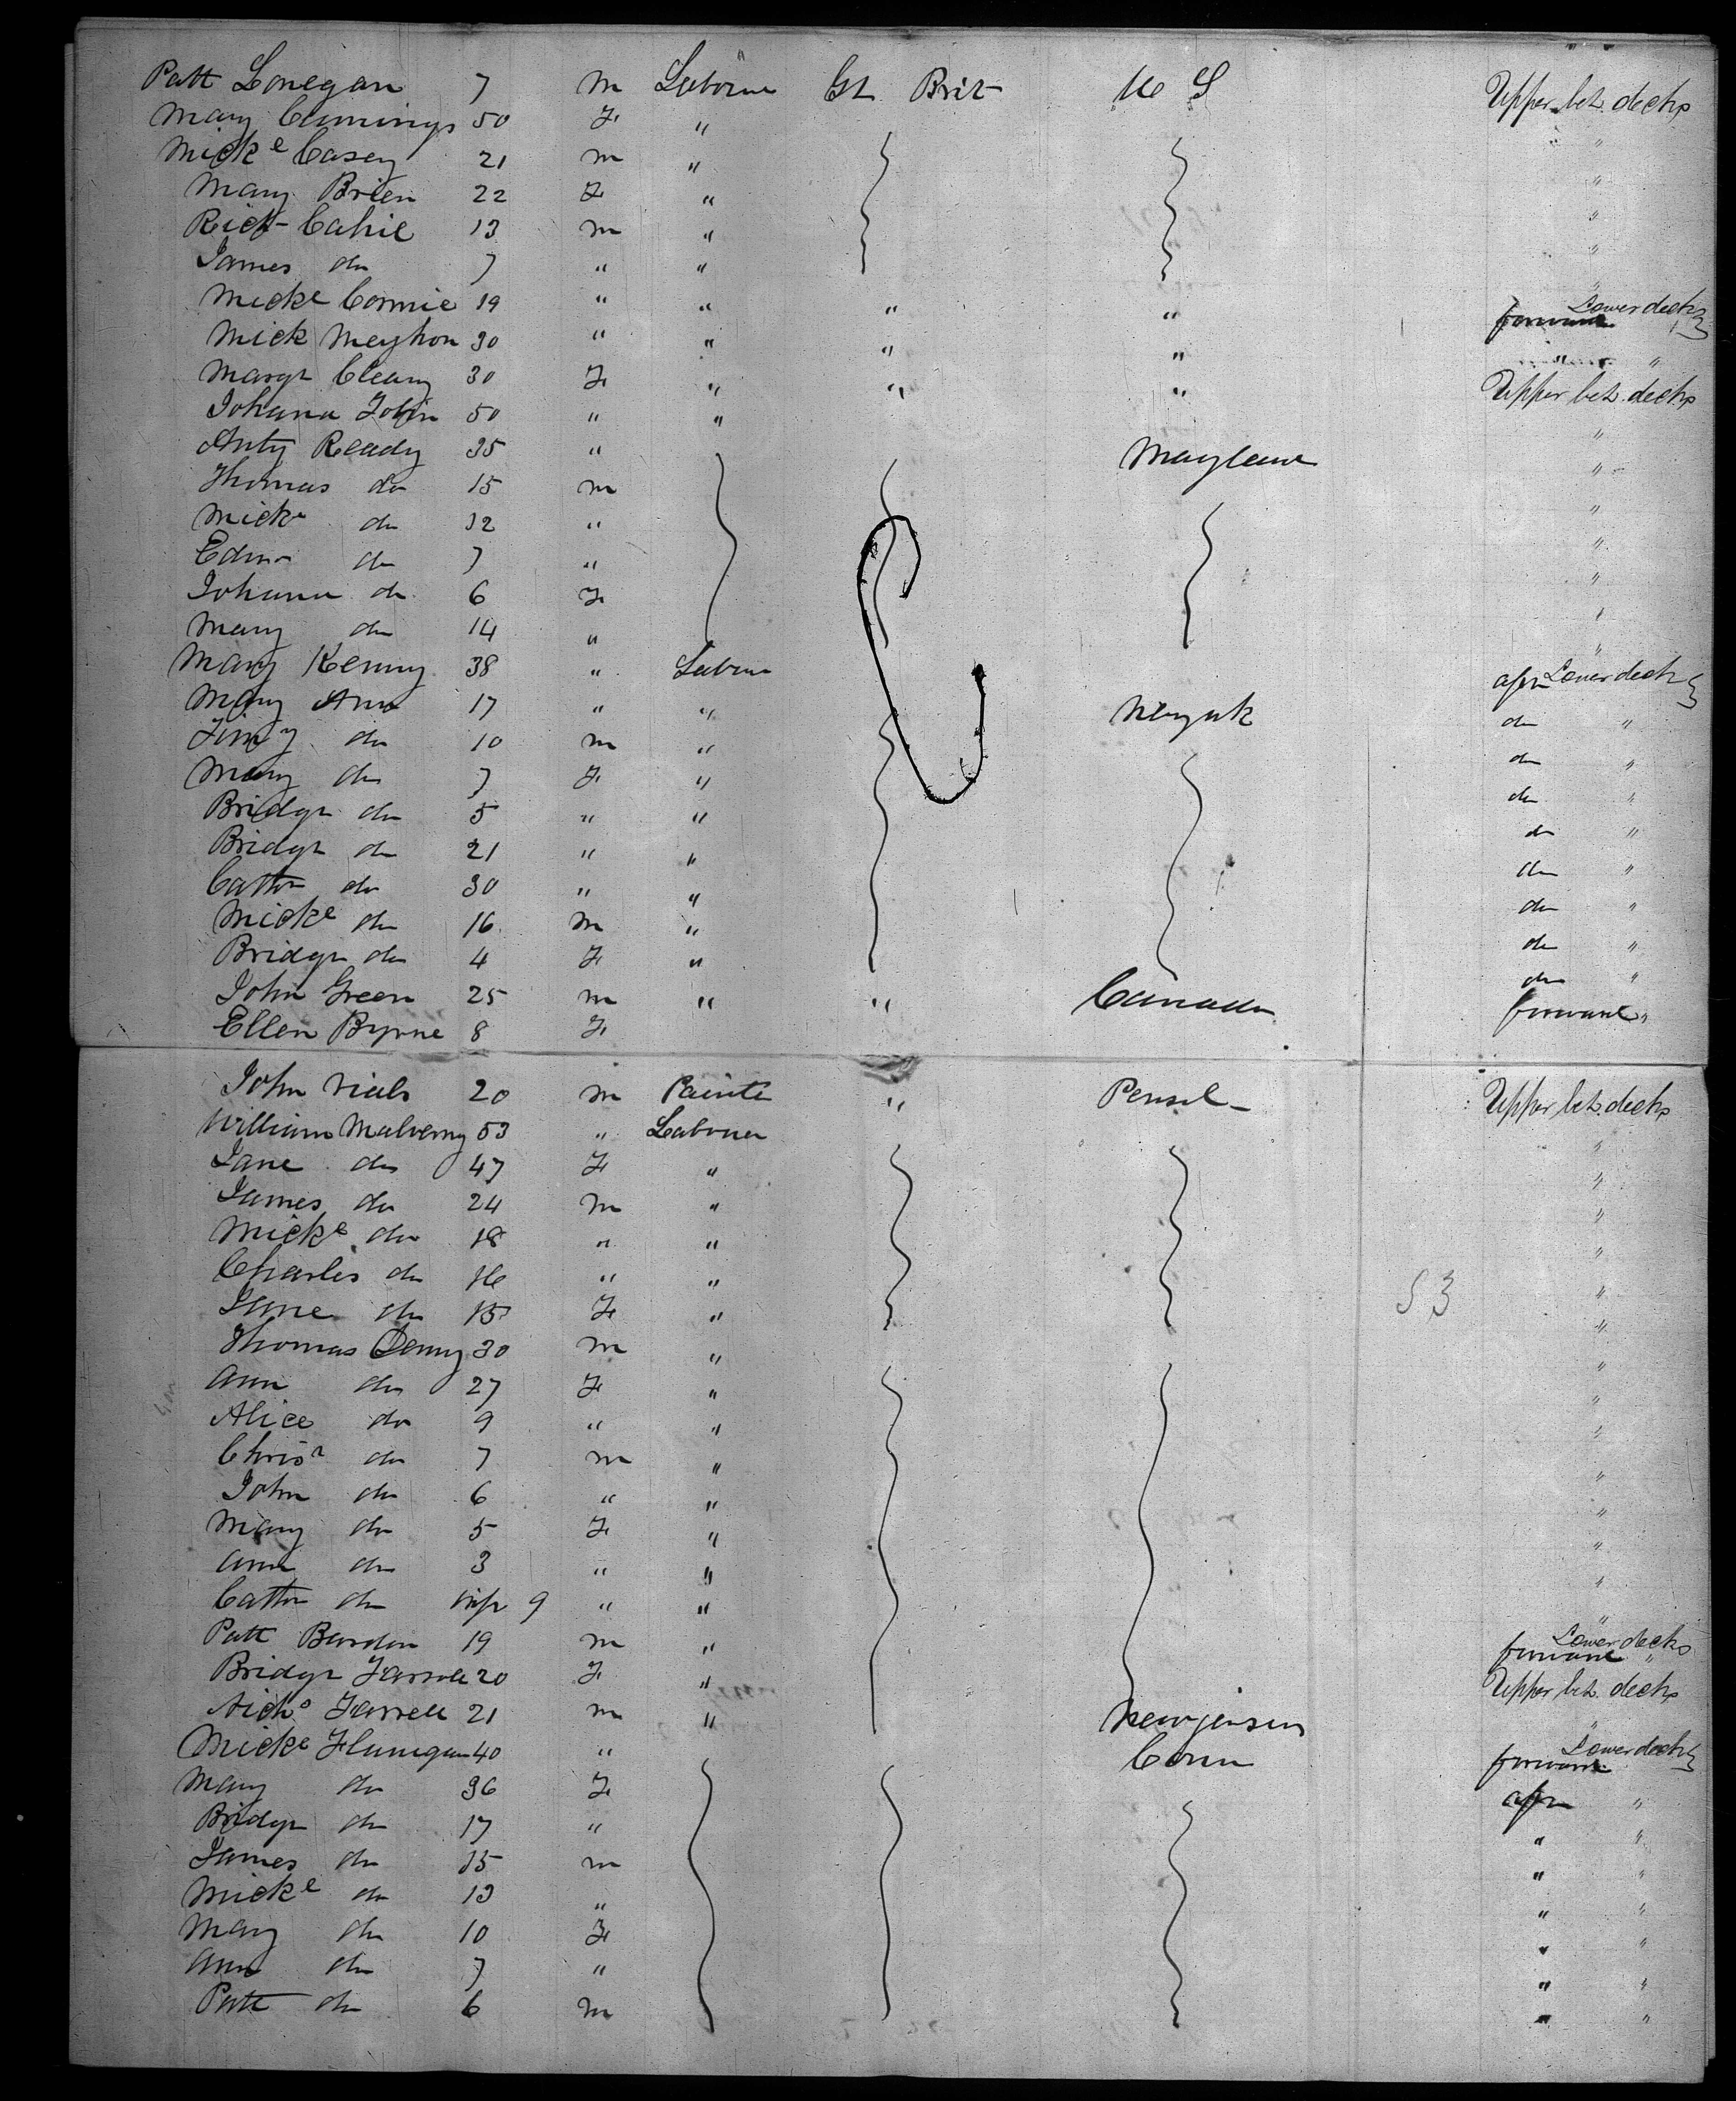 Patt Lonegan 7 m Laborer Gt Brit U S Upper bet. decks
Mary Cumings 50 F " "
Micke Casey 21 m " "
Mary Brien 22 F " "
Rich Cahil 13 m " "
James do 7 " " "
Micke Cormic 19 " " " " Lower decks forward
Mick Meyhon 30 " " " " " "
Margt Cleary 30 F " " " Upper bet. decks
Johana Tobin 50 " " "
Anty Ready 35 " Maryland "
Thomas do 15 m "
Micke do 12 " "
Edmd do 7 " "
Johana do 6 F "
Mary do 14 " "
Mary Kenny 38 " Labour aft Lower deck
Mary Ann 17 " " Neyork do "
Timy do 10 m " do "
Mary do 7 F " do "
Bridgt do 5 " " do "
Bridgt do 21 " " do "
Cathn do 30 " " do "
Micke do 16 m " do "
Bridgt do 4 F " do "
John Green 25 m " " Canada forward "
Ellen Byrne 8 F
John Niels 20 m Painte " Pensel- Upper bet decks
William Mulverny 53 " Labourer "
Jane do 47 F " "
James do 24 m " "
Micke do 18 " " "
Charles do 16 " " "
Jane do 15 F " "
Thomas Denny 30 m " "
Ann do 27 F " "
Alice do 9 " " "
Chrisr do 7 m " "
John do 6 " " "
Mary do 5 F " "
Ann do 3 " " "
Cathn do inft 9 " " "
Patt Bardon 19 m " Lower decks forward "
Bridgt Farrell 20 F " Upper bet. decks
Nichs Farrell 21 m " Newjersey "
Micke Flunigan 40 " Conn Lower deck forward
Mary do 36 F aft "
Bridgt do 17 " " "
James do 15 m " "
Micke do 13 " " "
Mary do 10 F " "
Ann do 7 " " "
Patt do 6 m " "
S 3